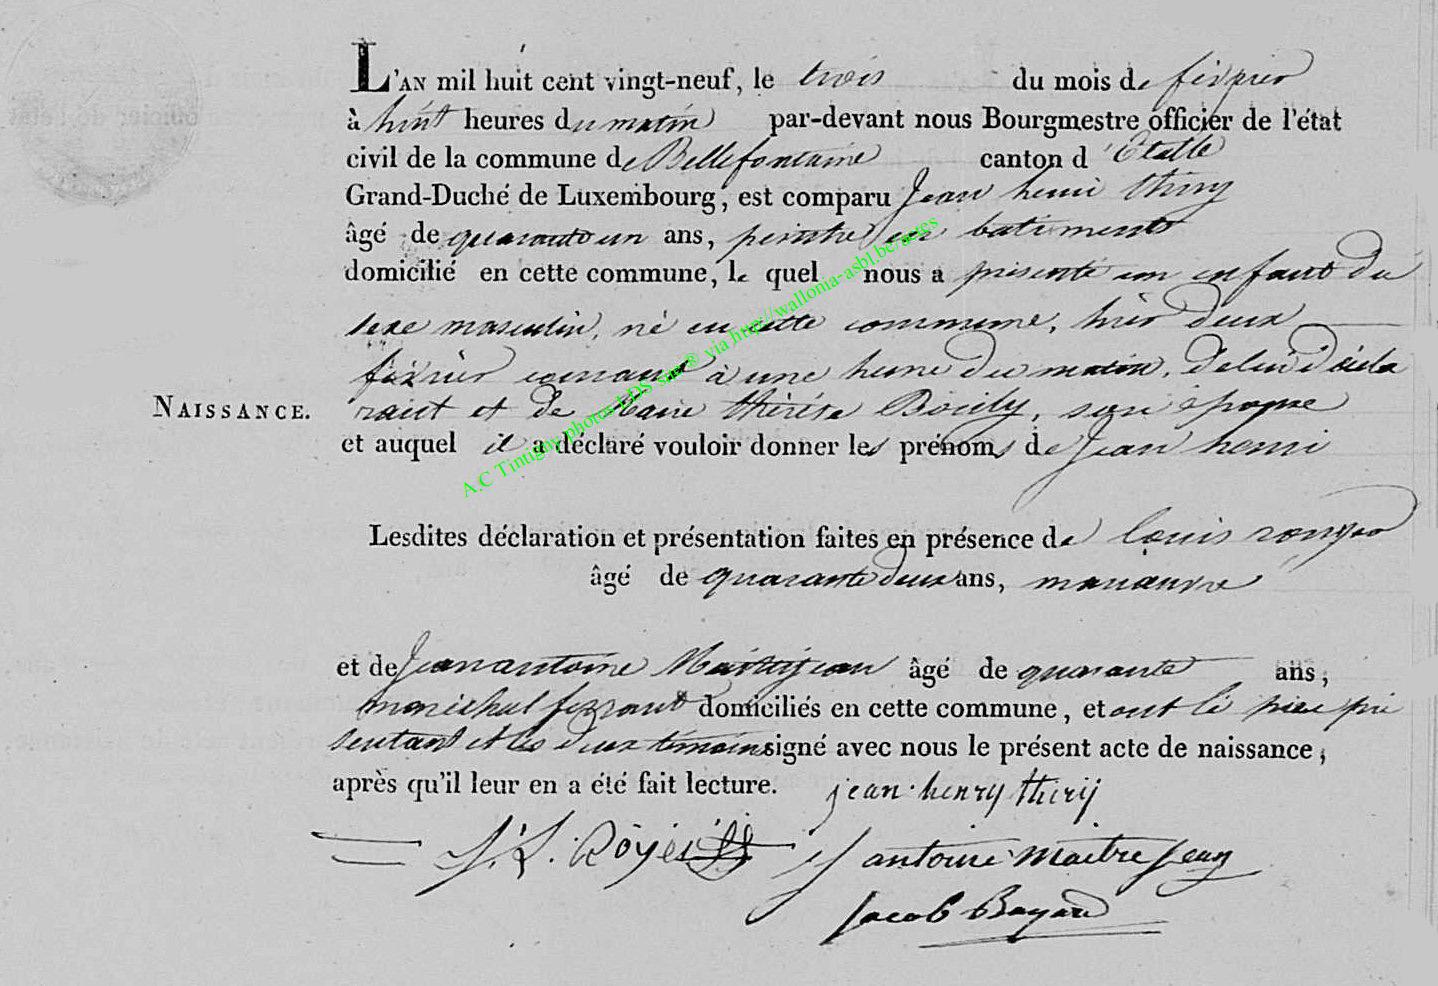 L'AN mil huit cent vingt-neuf, le trois du mois de fevrier
à huit heures du matin par-devant nous Bourgmestre officier de l'état
civil de la commune de Bellefontaine canton d'Etalle
Grand-Duché de Luxembourg, est comparu Jean henri thiry
âgé de quarante un ans, peintre en batiments
domicilié en cette commune, le quel nous a présenté un enfant du
sexe masculin, né en cette commune, hier deux
fevrier courant à une heure du matin, de lui décla
NAISSANCE.
rant et de Marie thérése Bouly, son épouse
et auquel il a déclaré vouloir donner les prénoms de Jean henri
Lesdites déclaration et présentation faites en présence de Louis
âgé de quarante deux ans, manœuvre
et de Jean antoine Maitrejean âgé de quarante ans,
maréchal ferrant domiciliés en cette commune, et ont le père pré
sentant et les deux témoins signé avec nous le présent acte de naissance,
après qu'il leur en a été fait lecture. jean henry thirij
J. antoine Maitrejean
Jacob Bayard
A.C Tintigny photos LDS san® via http://wallonia-asbl.be/actes